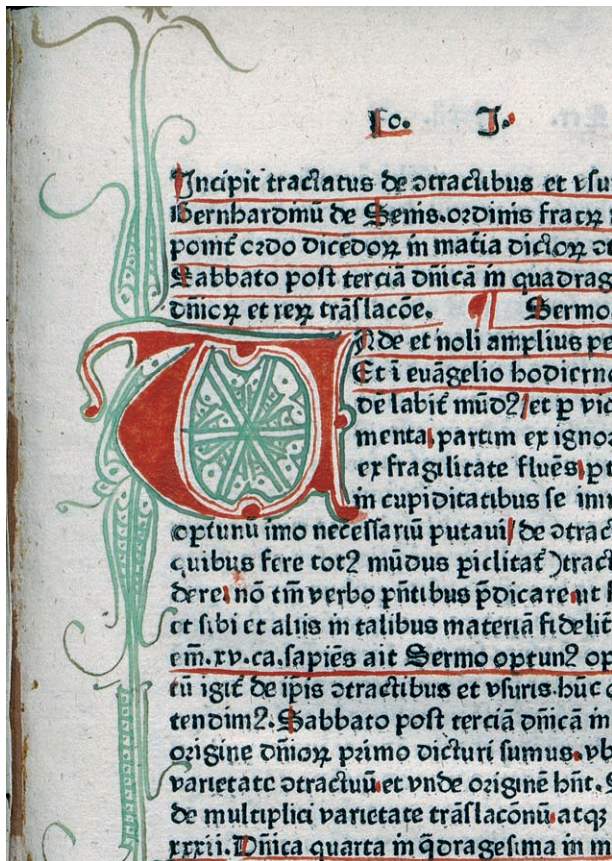 Fo. I.
Incipit tractatus de ↄtractibus et vsu
Bernhardinū de Senis. ordinis fratꝝ
ponit̄ ordo dicēdoꝝ in mat̄ia dictoꝝ
Sabbato post terciā dn̄icā in quadrag
dn̄ioꝝ et reꝝ trāslacōe. ¶ Sermo
Ade et noli amplius pe
Et ī euāgelio hodierno
de labit̄ mūdꝰ / et ꝑ vic
menta partim ex ignor
ex fragilitate fluēs
in cupiditatibus se imm
optunū imo necessariū putaui / de ↄtrac
quibus fere totꝰ mūdus ꝑiclitat̄ ↄtract
dere nō tm̄ verbo pn̄tibus p̄dicare ut
et sibi et aliis in talibus materiā fidelit̄
em̄. xv. ca. sapiēs ait Sermo optunꝰ op
tū igit̄ de ip̄is ↄtractibus et vsuris. hūc
tendimꝰ. Sabbato post terciā dn̄icā in
origine dn̄ioꝝ primo dicturi sumus. vb
varietate ↄtractuū et vnde originē hn̄t. S
de multiplici varietate trāslacōnū atqꝫ
xxxii. Dn̄ica quarta in q̄dragesima in m